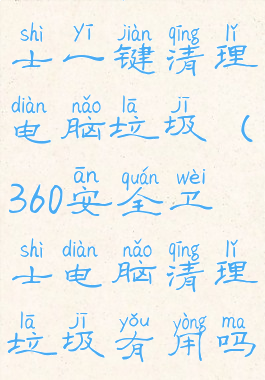 shì yī jiàn qīng lǐ
士一键清理
diàn nǎo lā jī
电脑垃圾（
ān quán wèi
360安全卫
shì diàn nǎo qīng lǐ
士电脑清理
lā jī yǒu yòng ma
垃圾有用吗